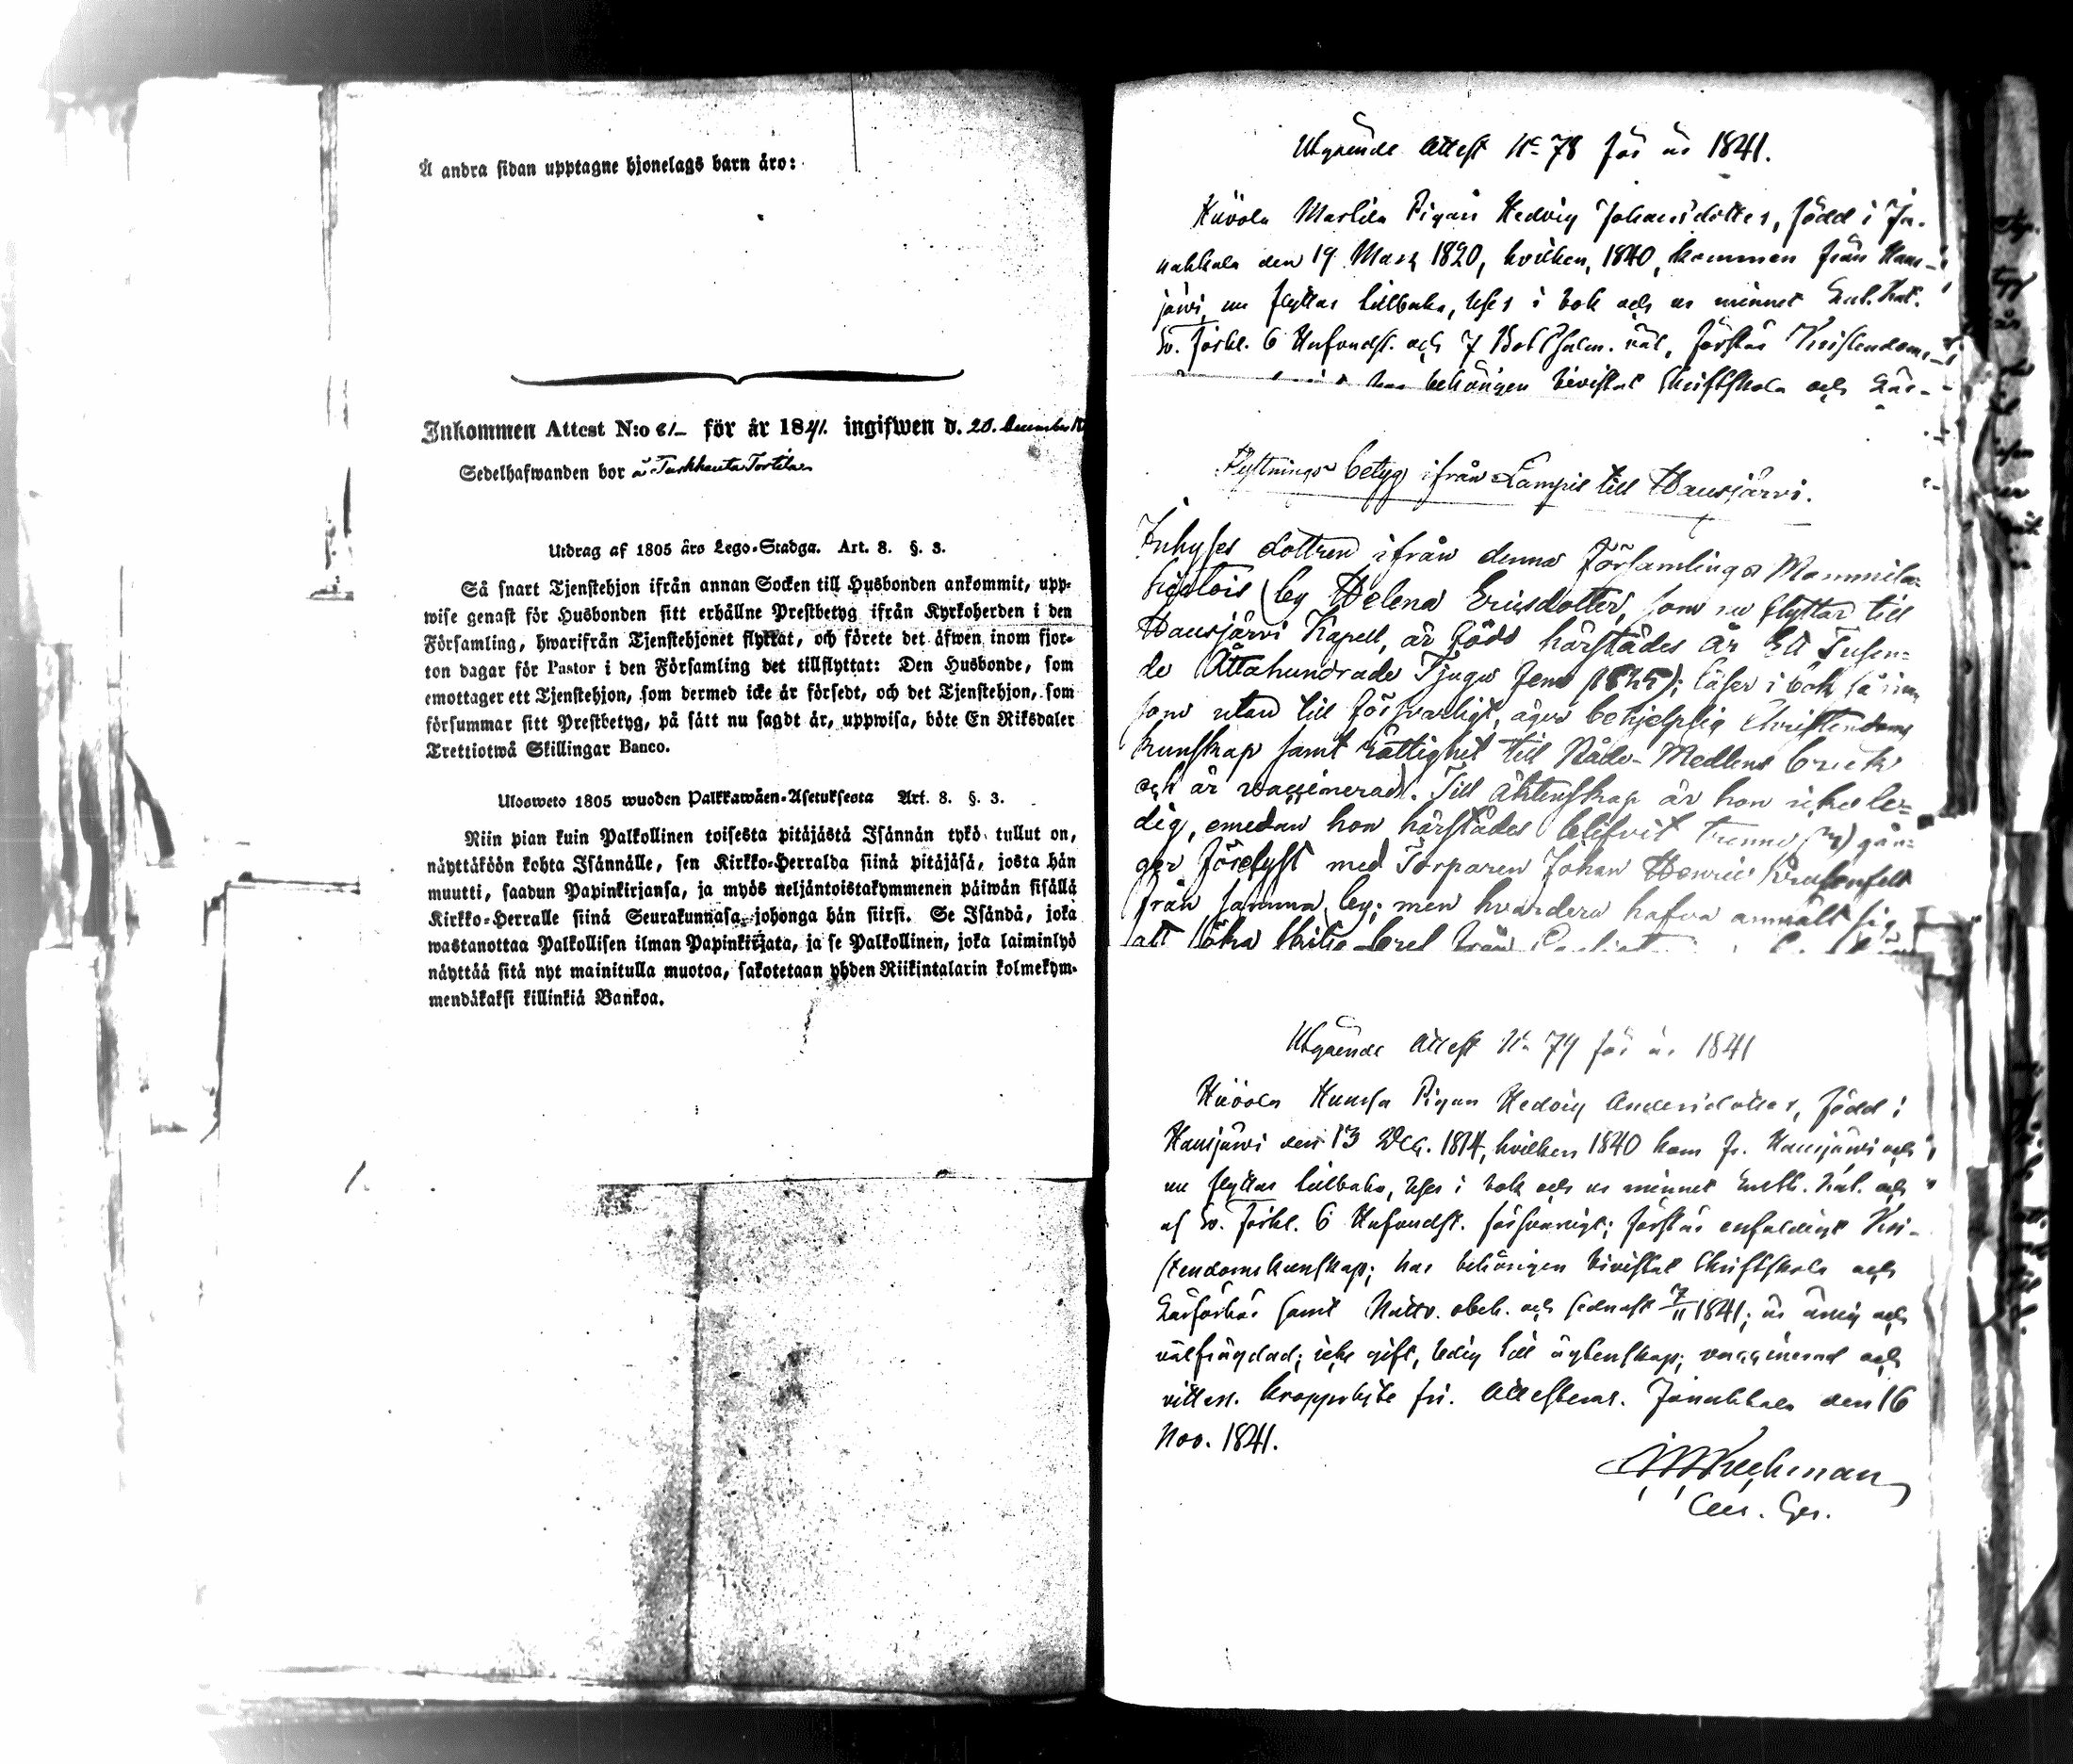 Å andra sidan upptagne hjonelags barn äro:
Inkommen Attest N:o 81 för år 1841. ingifwen d. 20. December
Sedelhafwanden bor å Turkhauta Tortila
Utdrag af 1805 års Lego-Stadga. Art. 8. §. 3.
Så snart Tjenstehjon ifrån annan Socken till Husbonden ankommit, upp-
wise genast för Husbonden sitt erhållne Prestbetyg ifrån Kyrkoherden i den
Församling, hwarifrån Tjenstehjonet flyttat, och förete det äfwen inom fjor-
ton dagar för Pastor i den Församling det tillflyttat: Den Husbonde, som
emottager ett Tjenstehjon, som dermed icke är försedt, och det Tjenstehjon, som
försummar sitt Prestbetyg, på sätt nu sagdt är, uppwisa, böte En Riksdaler
Trettiotwå Skillingar Banco.
Ulosweto 1805 wuoden Palkkawäen-Asetuksesta Art. 8. §. 3.
Niin pian kuin Palkollinen toisesta pitäjästä Isännän tykö tullut on,
näyttäköön kohta Isännälle, sen Kirkko-Herralda siinä pitäjäsä, josta hän
muutti, saadun Papinkirjansa, ja myös neljäntoistakymmenen päiwän sisällä
Kirkko-Herralle siinä Seurakunnasa, johonga hän siirsi. Se Isändä, joka
wastanottaa Palkollisen ilman Papinkirjata, ja se Palkollinen, joka laiminlyö
näyttää sitä nyt mainitulla muotoa, sakotetaan yhden Riikintalarin kolmekym-
mendäkaksi killinkiä Bankoa.
Utgående Attest No 78 för år 1841.
Marlila Pigan Hedvig Johansdotter, född i Ja-
nakkala den 19 Mars 1820, hvilken, 1840, kommen från Haus-
järvi, nu flyttar tillbaka, läser i bok och ur minnet
Sv. Förkl. 6 Hufvudst. och 7 Bot Psalm. väl, förstår Kristendoms-
har behörigen bivistat Skriftskola och Läs-
Flyttnings betyg ifrån Lampis till Hausjärvi.
Inhyses dottren ifrån denna Församlings Mommila
by Helena Ericsdotter, som nu flyttar till
Hausjärvi Kapell, är född härstädes år Ett Tusen-
de Åttahundrade Tjugu fem (1825); läser i bok så inn
som utan till försvarligt, äger behjelplig Christendoms
kunskap samt rättighet till Nåde-Medlens bruk
och är vaccinerad. Till äktenskap är hon icke le-
dig, emedan hon härstädes blifvit trenne (3) gån-
ger förelyst med Torparen Johan Henric
från samma by; men hvardera hafva anmält sig
att söka skiljobref från
Utgående Attest No 79 för år 1841
Hunsa Pigan Hedvig Andersdotter, född i
Hausjärvi den 13 Dec. 1814, hvilken 1840 kom fr. Hausjärvi och
nu flyttar tillbaka, läser i bok och ur minnet Luth. Kat. och
af Sv. Förkl. 6 Hufvudst. försvarligt; förstår enfaldigt Kri-
stendomskunskap; har behörigen bivistat Skriftskola och
Läsförhör samt Nattv. obeh. och sednast 7/11 1841; är ärlig och
välfrägdad; icke gift, ledig till äktenskap; vaccinerad och
vitterl. kroppslyte fri. Attesteras. Janakkala den 16
Nov. 1841.